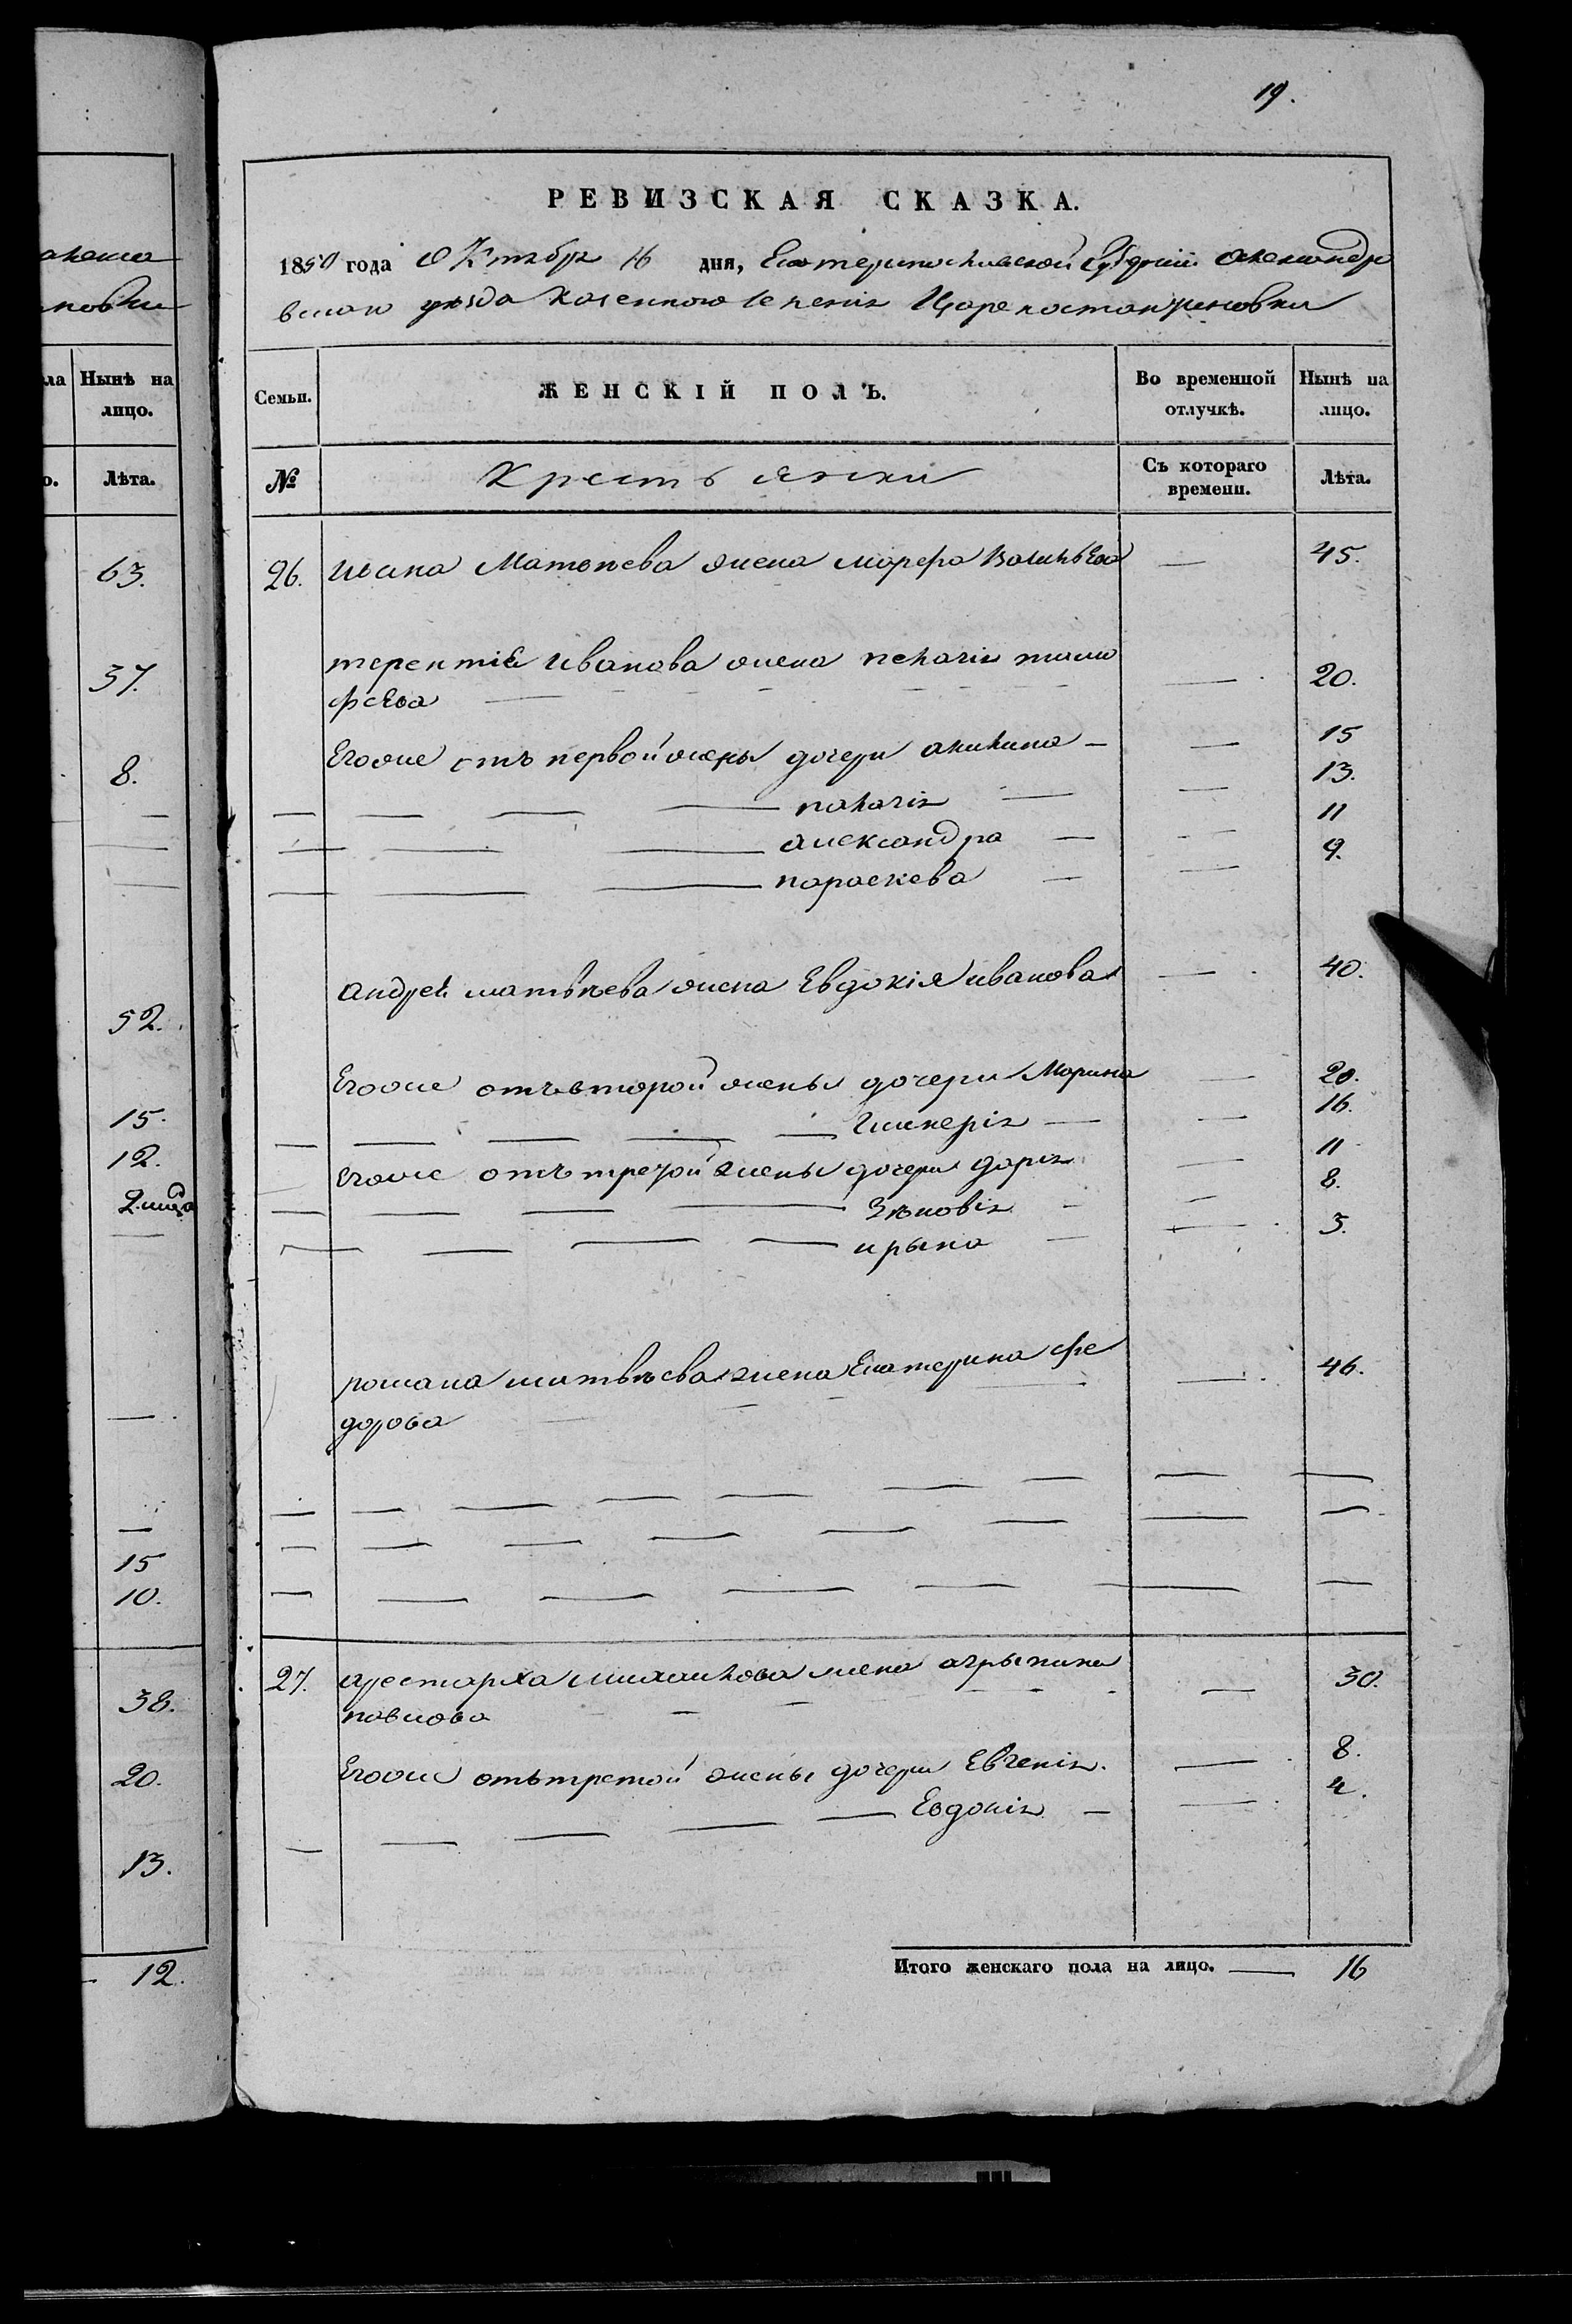 19.
РЕВИЗСКАЯ СКАЗКА.
1850 года Октября 16 дня, Екатеринославской Губернии Александро
вскаго уѣзда казенного селения Цареконстантиновки
Семьи.
ЖЕНСКІЙ ПОЛЪ.
Во временной отлучкѣ.
Нынѣ на лицо.
№
Крестьянки
Съ котораго времени.
Лѣта.
26. Ивана Матвѣева жена Марфа — 45.
терентія Иванова жена пелагія тимо — 20.
фѣева
Егоже отъ первой жены дочери акилина — 15
пелагія — 13.
александра — 11
параскева — 9.
андрея матвѣева жена Евдокія иванова — 40.
Егоже отъ второй жены дочери Марина — 20.
Гликерія — 16.
Егоже отъ третой жены дочери дарія — 11
Зѣновія — 8.
ирына — 3.
романа матвѣева жена Екатерина фе — 46.
дорова
27. арестарха михайлова жена агрыпина — 30.
павлова
Егоже отъ третой жены дочери Евгенія. — 8.
Евдокія — 4.
Итого женскаго пола на лицо. — 16
ла
Нынѣ на лицо.
Лѣта.
63.
37.
8.
52.
15.
12.
15
10.
38.
20.
13.
12.